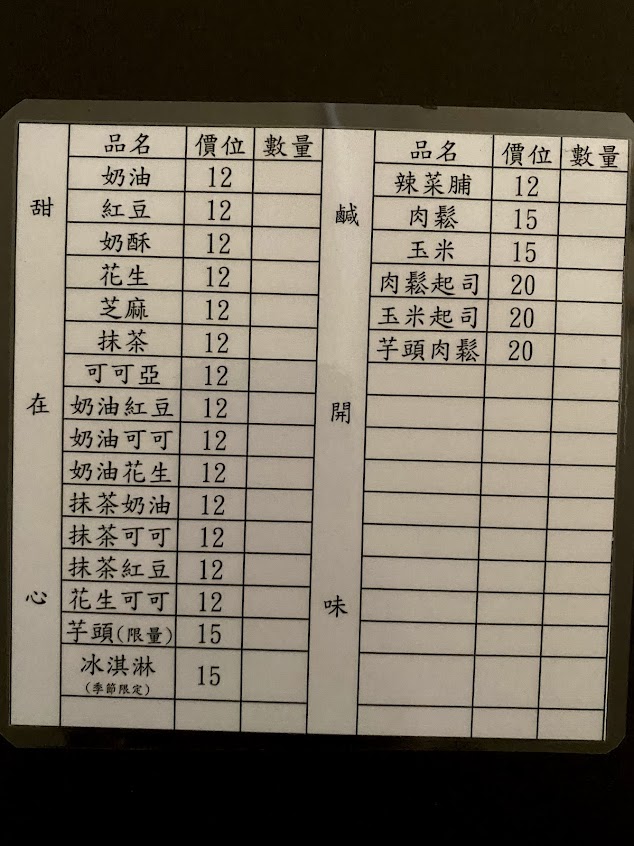 甜在心
品名 價位 數量
奶油 12
紅豆 12
奶酥 12
花生 12
芝麻 12
抹茶 12
可可亞 12
奶油紅豆 12
奶油可可 12
奶油花生 12
抹茶奶油 12
抹茶可可 12
抹茶紅豆 12
花生可可 12
芋頭(限量) 15
冰淇淋 15
(季節限定)
鹹開味
品名 價位 數量
辣菜脯 12
肉鬆 15
玉米 15
肉鬆起司 20
玉米起司 20
芋頭肉鬆 20